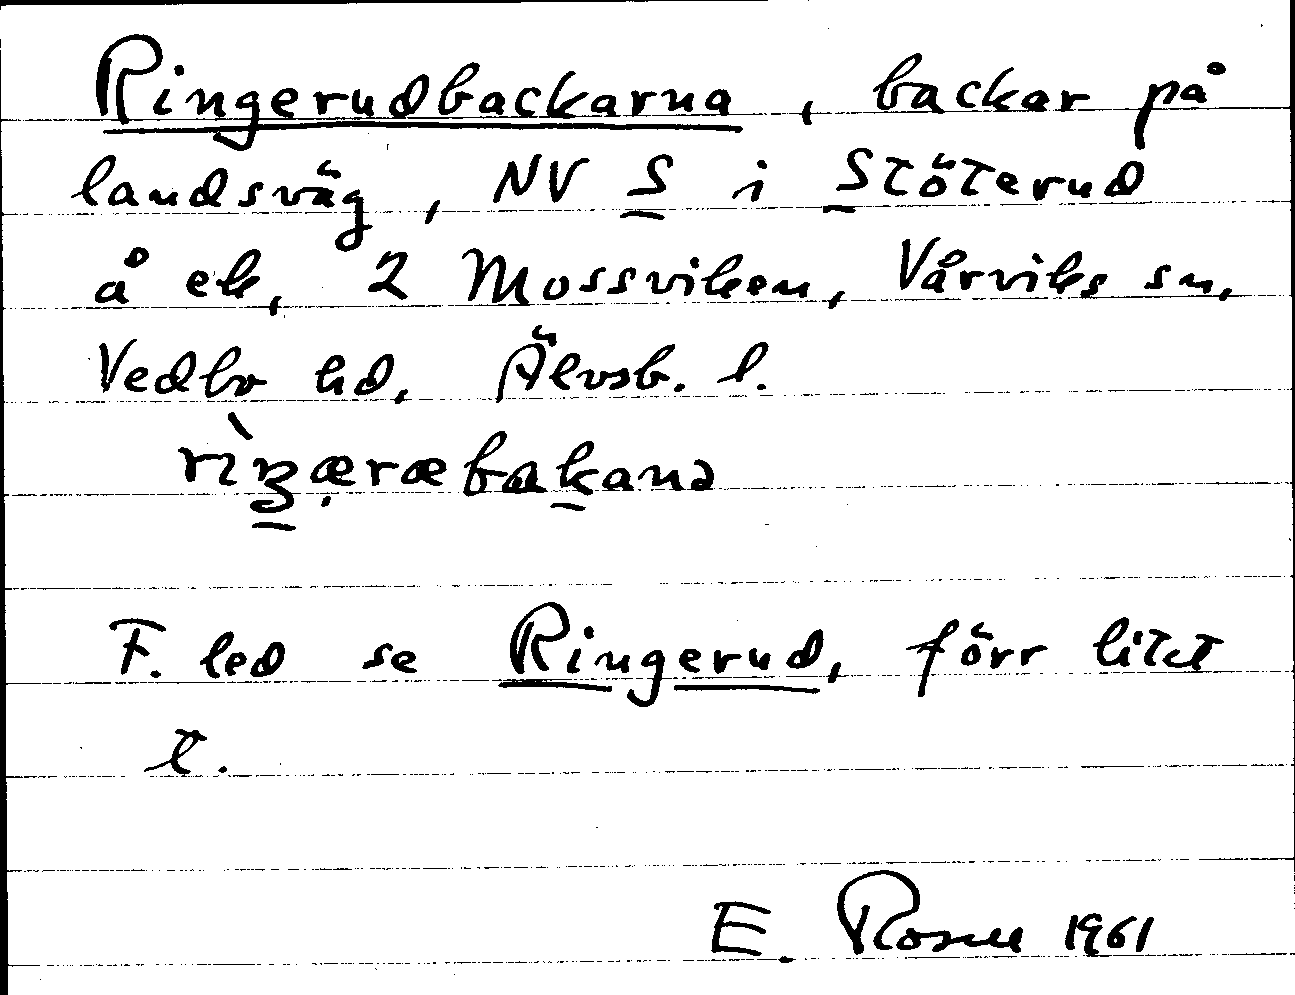 Ringerudbackarna, backar på
landsväg, NV S i Stöterud
å ek, 2 Mossviken, Vårviks sn,
Vedbo hd, Älvsb. l.
rìŋæræbakanə
F. led se Ringerud, förr litet
t.
E. Rosell 1961